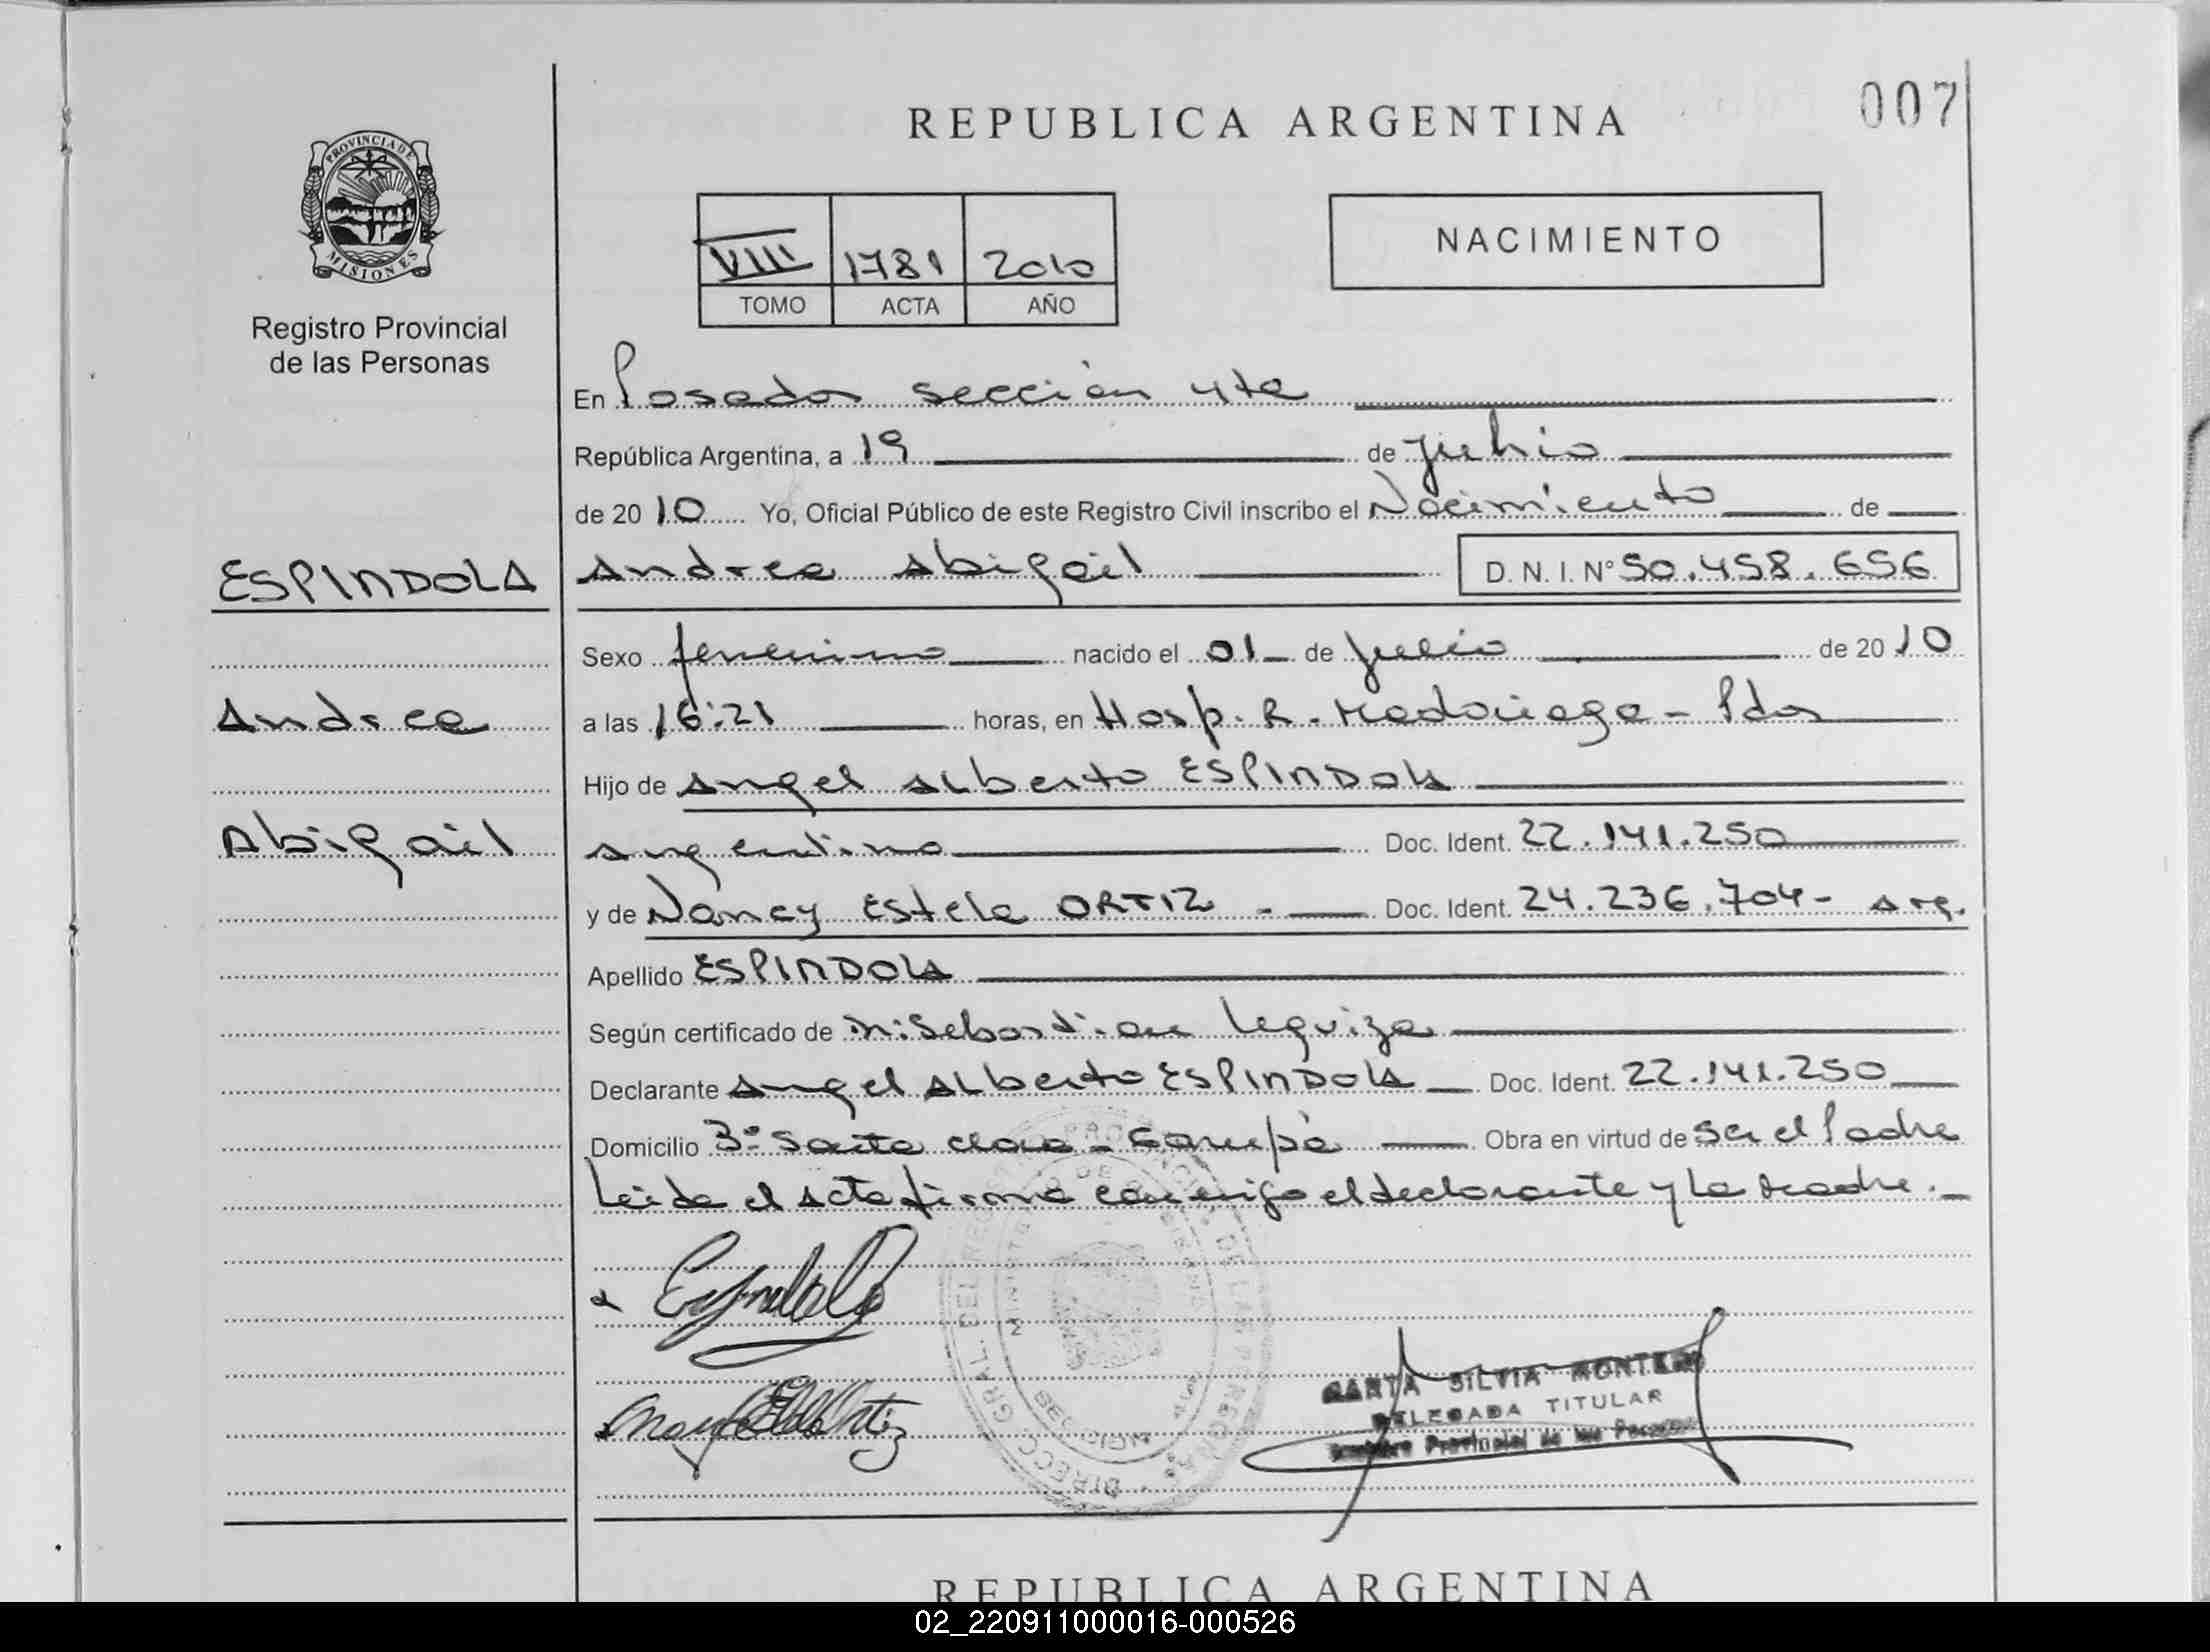 REPUBLICA ARGENTINA
007
PROVINCIA DE
MISIONES
Registro Provincial
de las Personas
VIII 1781 2010
TOMO ACTA AÑO
NACIMIENTO
En Posadas sección 4ta
República Argentina, a 19 de Julio
de 20 10 Yo, Oficial Público de este Registro Civil inscribo el Nacimiento de
ESPINDOLA
Andrea Abigail D.N.I. Nº 50.458.656
Sexo femenino nacido el 01 de Julio de 20 10
Andrea
a las 16:21 horas, en Hosp. R. Madariaga - Pdas
Hijo de Angel Alberto ESPINDOLA
Abigail
argentino Doc. Ident. 22.141.250
y de Nancy Estela ORTIZ - Doc. Ident. 24.236.704 - Arg.
Apellido ESPINDOLA
Según certificado de Sebastian Leguiza
Declarante Angel Alberto ESPINDOLA Doc. Ident. 22.141.250
Domicilio 3º Santa Clara - Garupá Obra en virtud de ser el Padre
Leída el Acta firma conmigo el declarante y la Madre.
SILVIA MONTERO
DELEGADA TITULAR
Provincial de las Personas
REPUBLICA ARGENTINA
02_220911000016-000526